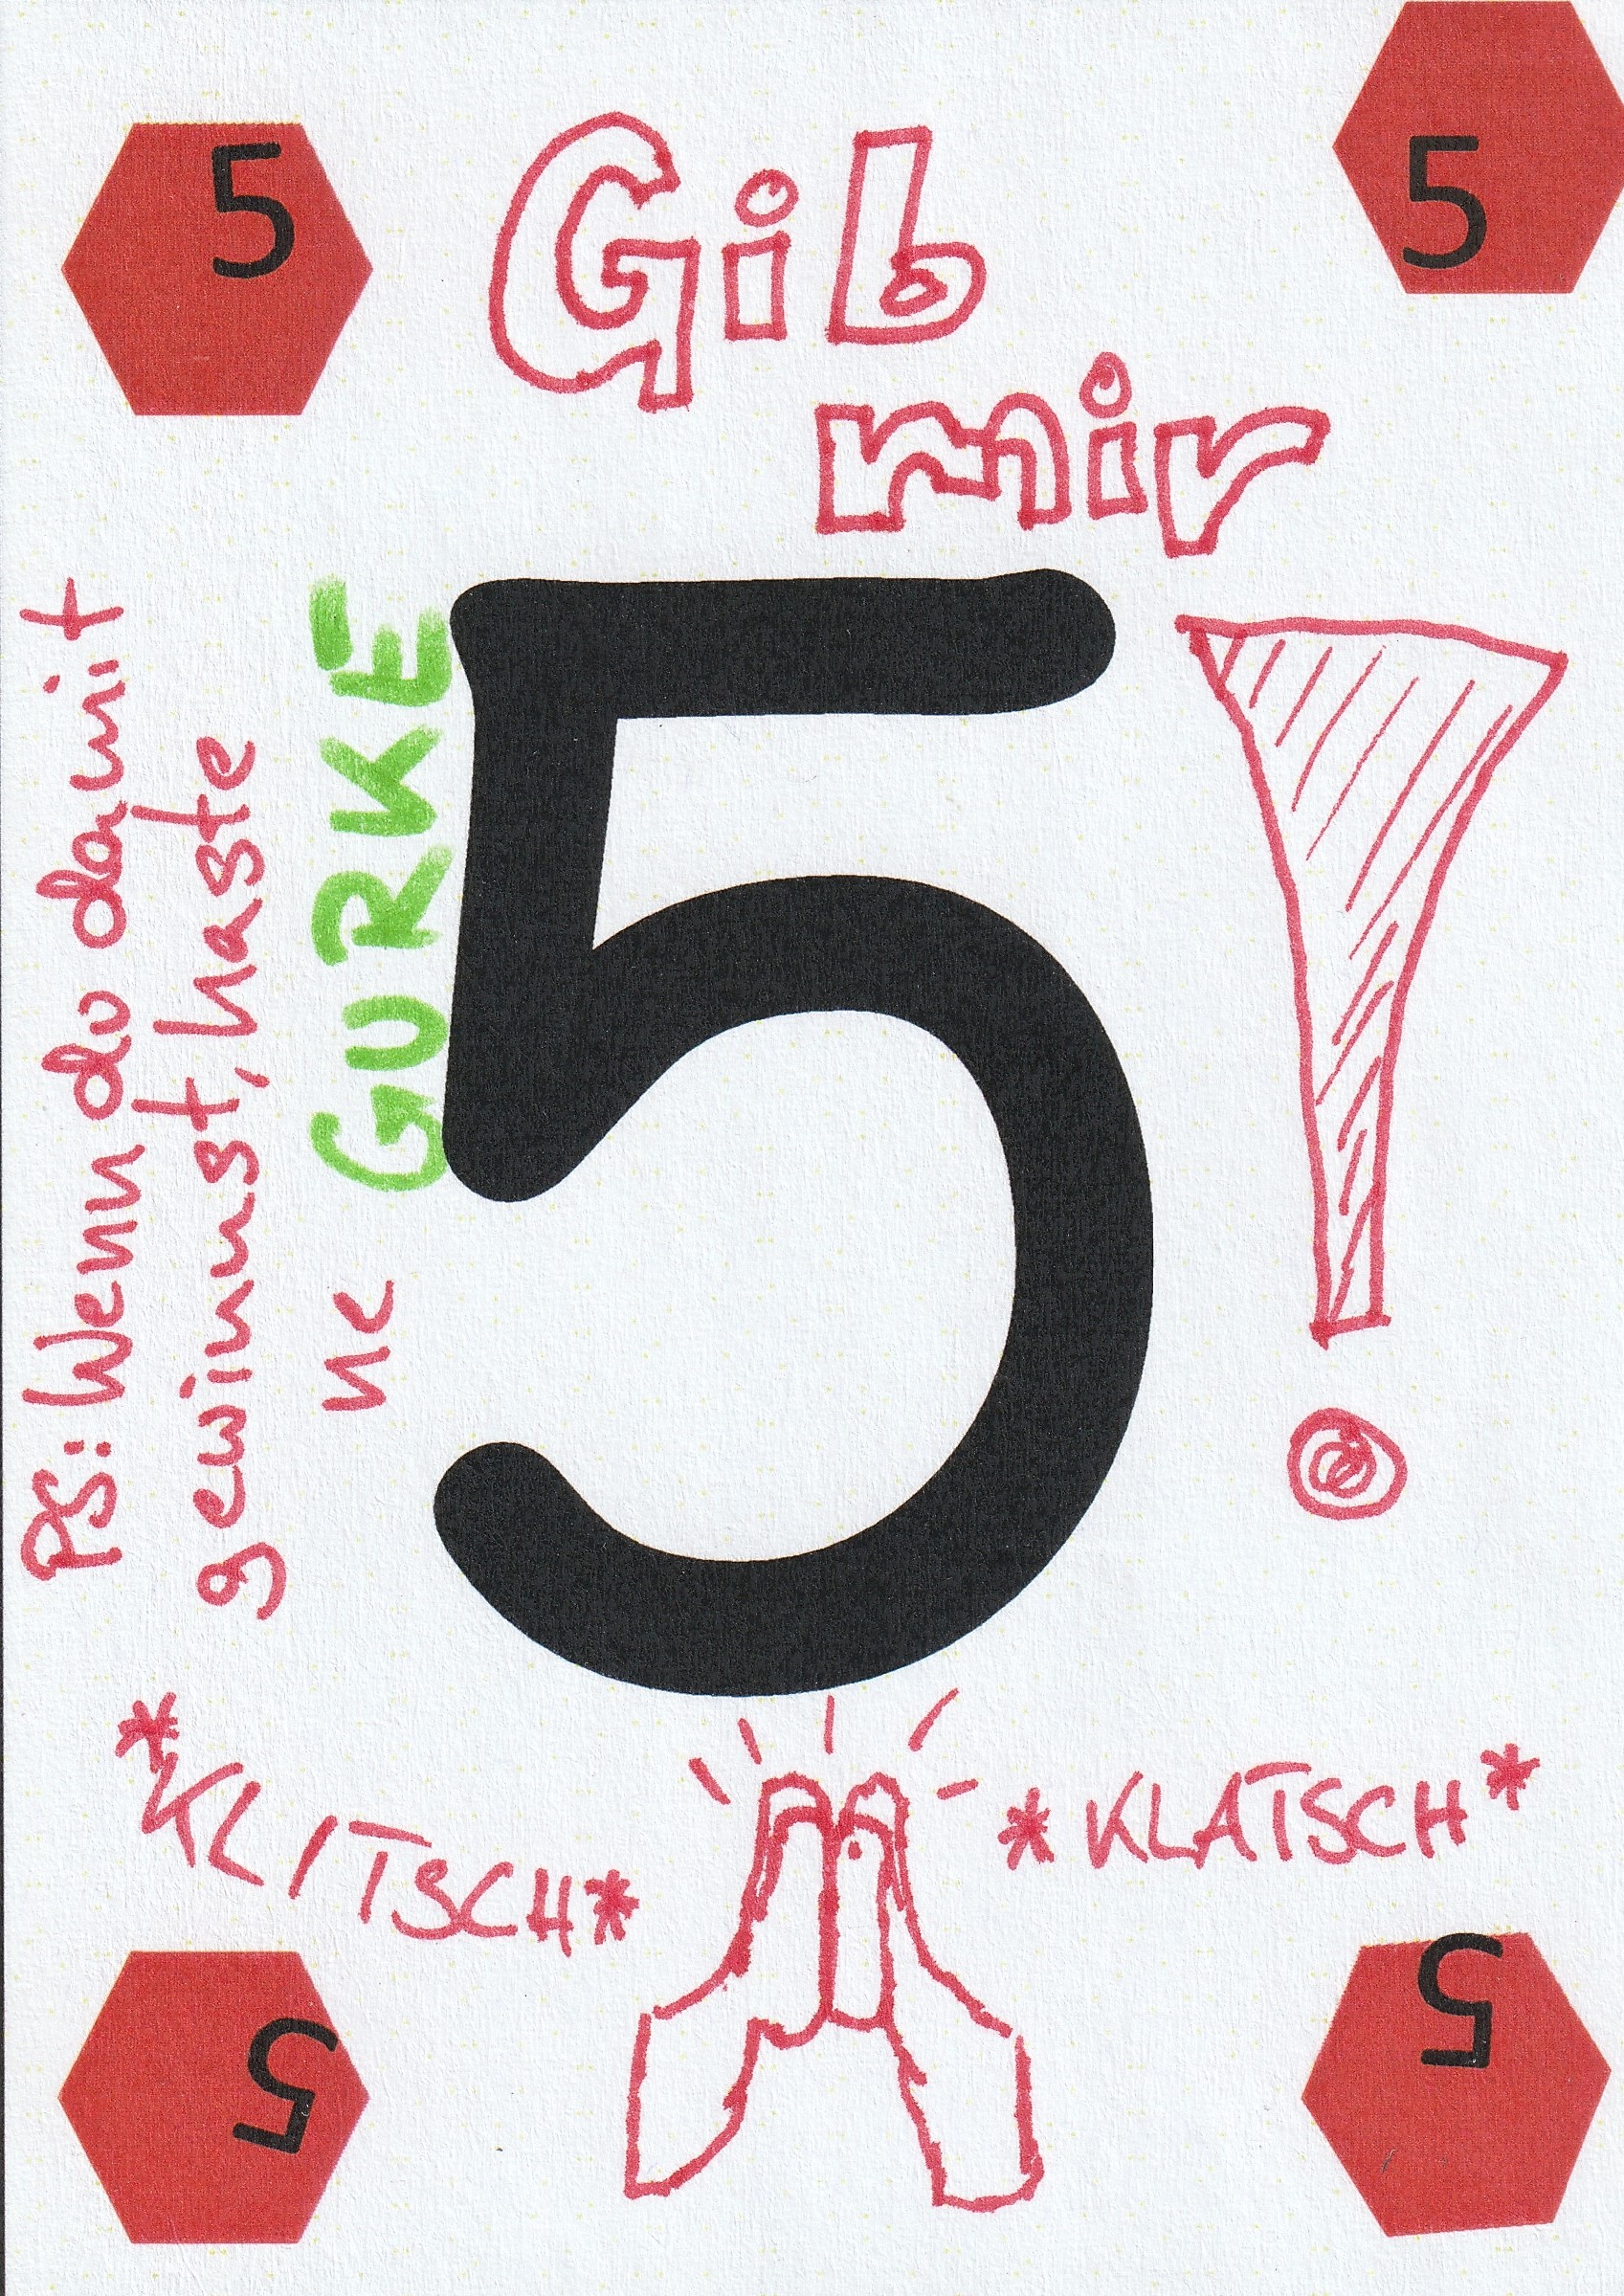 5
5
Gib
mir
5!
PS: Wenn du damit
gewinnst, haste
ne GURKE
*KLITSCH*
*KLATSCH*
5
5